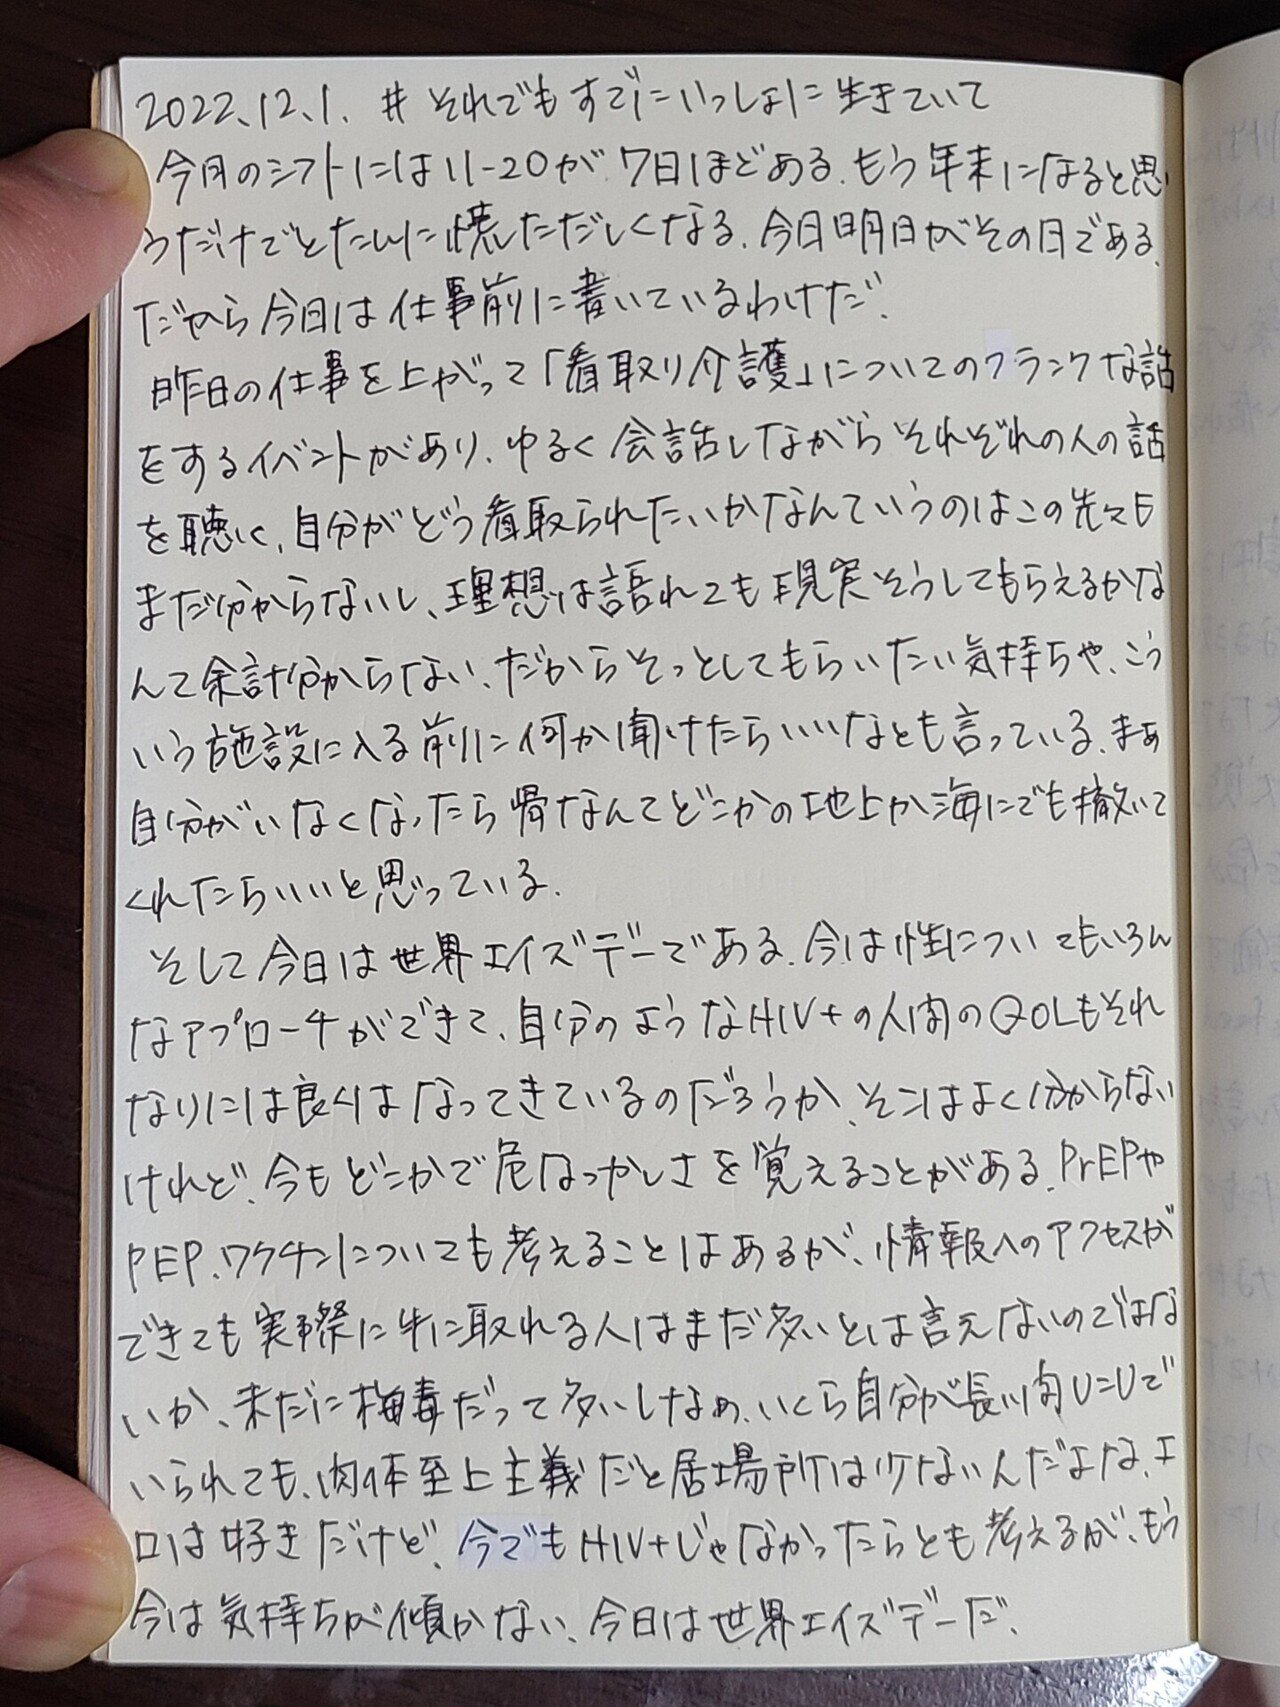 2022.12.1. #それでもすでにいっしょに生きていて
今月のシフトには11-20が7日ほどある.もう年末になると思
うだけでとたんに慌ただしくなる.今日明日がその日である.
だから今日は仕事前に書いているわけだ.
昨日の仕事を上がって「看取り介護」についてのフランクな話
をするイベントがあり、ゆるく会話しながらそれぞれの人の話
を聴く、自分がどう看取られたいかなんていうのはこの先々も
まだ分からないし、理想は語れても現実そうしてもらえるかな
んて余計分からない、だからそっとしてもらいたい気持ちや、こう
いう施設に入る前に何か聞けたらいいなとも言っている.まぁ
自分がいなくなったら骨なんてどこかの地上か海にでも撒いて
くれたらいいと思っている.
そして今日は世界エイズデーである.今は性についてもいろん
なアプローチができて、自分のようなHIV+の人間のQOLもそれ
なりには良くはなってきているのだろうか、そこはよく分からない
けれど、今もどこかで危なっかしさを覚えることがある.PrEPや
PEP、ワクチンについても考えることはあるが、情報へのアクセスが
できても実際に手に取れる人はまだ多いとは言えないのではな
いか、未だに梅毒だって多いしなぁ、いくら自分が長い間U=Uで
いられても、肉体至上主義だと居場所は少ないんだよな、エ
ロは好きだけど、今でもHIV+じゃなかったらとも考えるが、もう
今は気持ちが傾かない、今日は世界エイズデーだ.